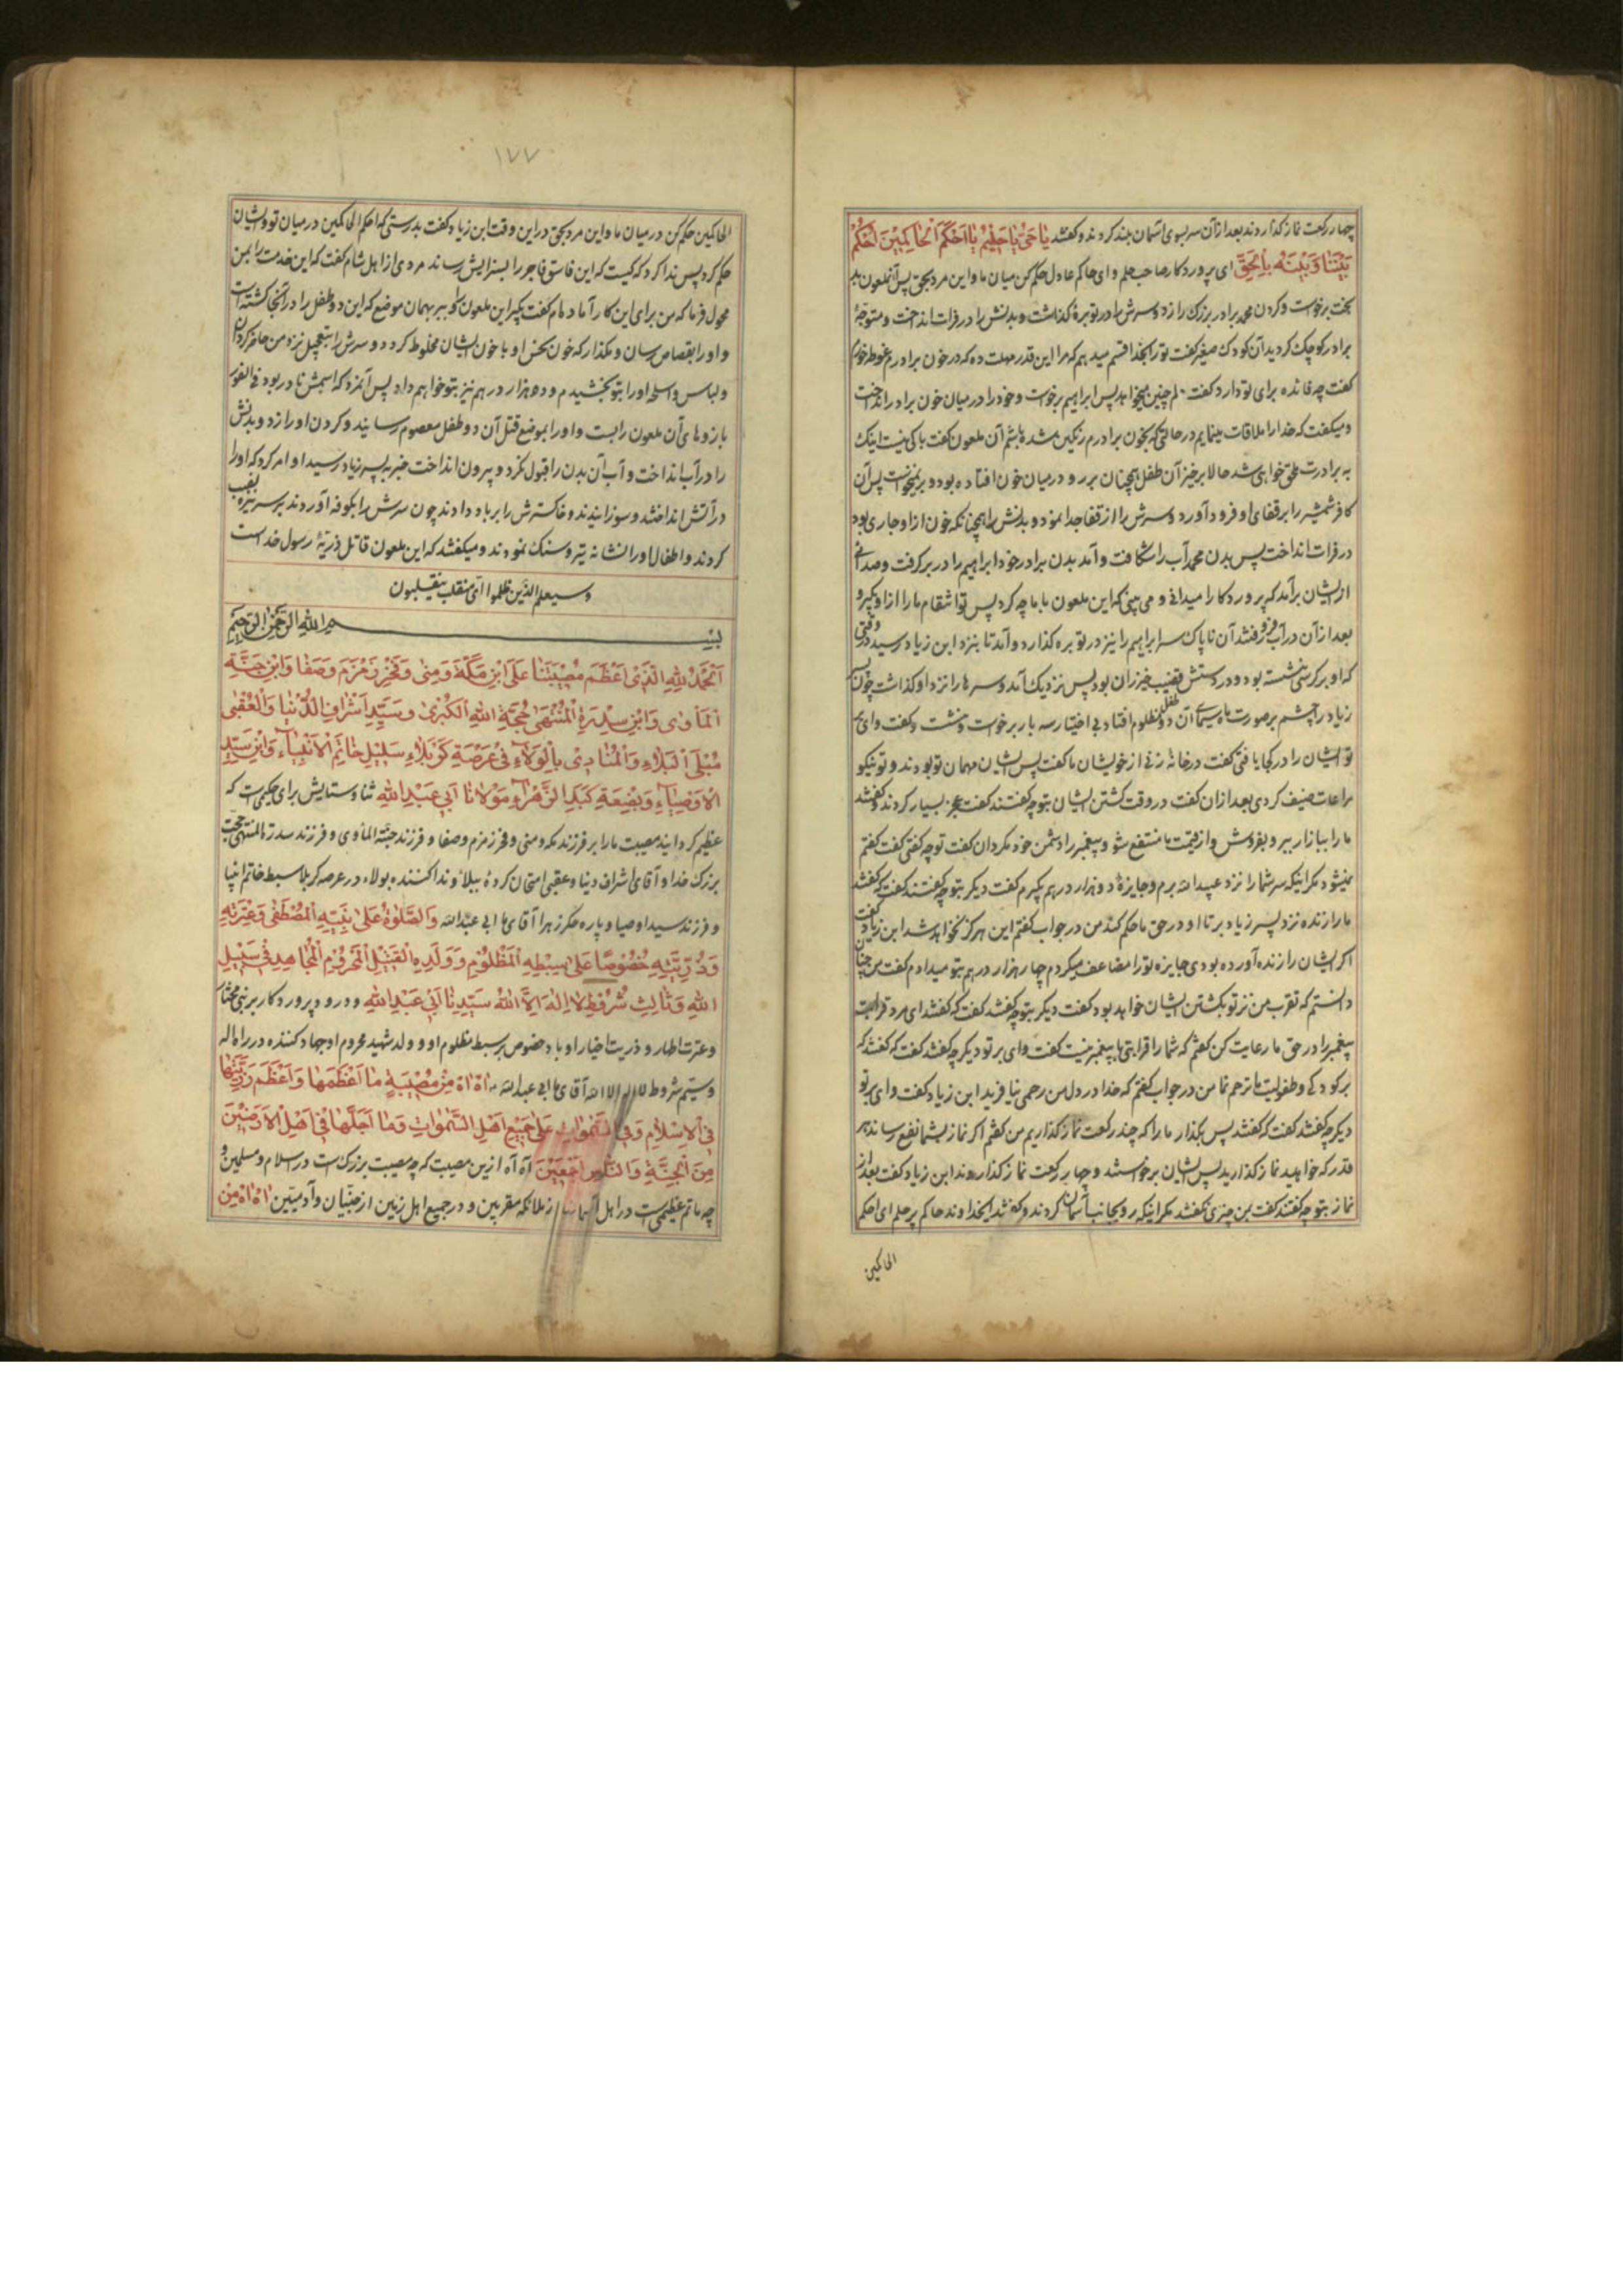 چهار رکعت نماز کذاردند بعد از آن سر بسوی آسمان بلند کردند و کفتند یٰا حَیُّ یٰا حَلِیْمُ یٰا اَحْکَمَ الْحٰاکِمِیْنَ اُحْکُمْ
بَیْنَنٰا وَبَیْنَهُ بِالْحَقِّ ای پروردکار صاحب حلم و ای حاکم عادل حکم کن میان ما و این مرد بحق پس آنملعون بد
بخت برخواست و کردن محمد برادر بزرک را زد و سرش را در توبره کذاشت و بدنش را در فرات انداخت و متوجهٔ
برادر کوچک کردید آن کودک صغیر کفت تو را بخدا قسم میدهم که مرا این قدر مهلت ده که در خون برادرم غوطه خورم
کفت چه فائده برای تو دارد کفت دلم چنین میخواهد پس ابراهیم برخواست و خود را در میان خون برادر انداخت
و میکفت که خدا را ملاقات مینمایم در حالتی که بخون برادرم رنکین شده باشم آن ملعون کفت باکی نیست اینک
به برادرت ملحق خواهی شد حالا برخیز آن طفل همچنان بر رو در میان خون افتاده بود و بر نمیخواست پس آن
کافر شمشیر را بر قفای او فرود آورد و سرش را از قفا جدا نمود و بدنش را همچنانکه خون از او جاری بود
در فرات انداخت پس بدن محمد آب را شکافت و آمد بدن برادر خود ابراهیم را در بر کرفت و صدائی
از ایشان برآمد که پروردکارا میدانی و می بینی که این ملعون با ما چه کرد پس تو انتقام ما را از او بکیر و
بعد از آن در آب فرو رفتند آن ناپاک سر ابراهیم را نیز در توبره کذارد و آمد تا بنزد ابن زیاد رسید وقتی
که او بر کرسی نشسته بود و در دستش قضیب خیزران بود پس نزدیک آمد و سرها را نزد او کذاشت چون پسر
زیاد را چشم بر صورت ماه سیمای آن دو طفل مظلوم افتاد بی اختیار سه بار برخواست و نشست و کفت وای بر
تو ایشان را در کجا یافتی کفت در خانهٔ زنی از خویشان ما کفت پس ایشان مهمان تو بودند و تو نیکو
مراعات ضیف کردی بعد از آن کفت در وقت کشتن ایشان بتو چه کفتند کفت عجز بسیار کردند و کفتند
ما را ببازار ببر و بفروش و از قیمت ما منتفع شو و پیغمبر را دشمن خود مکردان کفت تو چه کفتی کفت کفتم
نمیشود مکر اینکه سر شما را نزد عبید الله برم و جایزهٔ دو هزار درهم بکیرم کفت دیکر بتو چه کفتند کفت که کفتند
ما را زنده نزد پسر زیاد بر تا او در حق ما حکم کند من در جواب کفتم این هرکز نخواهد شد ابن زیاد کفت
اکر ایشان را زنده آورده بودی جایزه تو را مضاعف میکردم چهار هزار درهم بتو میدادم کفت من چنان
دانستم که تقرب من نزد تو بکشتن ایشان خواهد بود کفت دیکر بتو چه کفتند کفت که کفتند ای مرد قرابت
پیغمبر را در حق ما رعایت کن کفتم که شما را قرابتی با پیغمبر نیست کفت وای بر تو دیکر چه کفتند کفت که کفتند که
بر کودکی و طفولیت ما ترحم نما من در جواب کفتم که خدا در دل من رحمی نیافرید ابن زیاد کفت وای بر تو
دیکر چه کفتند کفت که کفتند پس بکذار ما را که چند رکعت نماز کذاریم من کفتم اکر نماز بشما نفع رساند هر
قدر که خواهید نماز کذارید پس ایشان برخواستند و چهار رکعت نماز کذاردند ابن زیاد کفت بعد از
نماز بتو چه کفتند کفت بمن چیزی نکفتند مکر اینکه رو بجانب آسمان کردند و کفتند ایخداوند حاکم پر حلم ای احکم
الحاکمین
۱۷۷
الحاکمین حکم کن در میان ما و این مرد بحق در این وقت ابن زیاد کفت بدرستی که احکم الحاکمین در میان تو و ایشان
حکم کرد پس ندا کرد که کیست که این فاسق فاجر را بسزایش رساند مردی از اهل شام کفت که این خدمت را بمن
محول فرما که من برای این کار آماده ام کفت بکیر این ملعون را و ببر بهمان موضع که این دو طفل را در آنجا کشته است
و او را بقصاص رسان و مکذار که خون نحس او با خون ایشان مخلوط کردد و سرش را بتعجیل نزد من حاضر کردان
و لباس و اسلحه او را بتو بخشیدم و ده هزار درهم نیز بتو خواهم داد پس آنمرد که اسمش نادر بود فی الفور
بازوهای آن ملعون را بست و او را بموضع قتل آن دو طفل معصوم رسانیدند و کردن او را زد و بدنش
را در آب انداخت و آب آن بدن را قبول نکرد و بیرون انداخت خبر به پسر زیاد رسید او امر کرد که او را
در آتش انداختند و سوزانیدند و خاکسترش را بر باد دادند چون سرش را بکوفه آوردند بر سر نیزه نصب
کردند و اطفال او را نشانهٔ تیر و سنک نمودند و میکفتند که این ملعون قاتل ذریّهٔ رسول خداست
وسیعلم الذین ظلموا ای منقلب ینقلبون
بسم الله الرحمن الرحیم
اَلْحَمْدُ لِلّٰهِ الَّذِیْ اَعْظَمَ مُصِیْبَتَنٰا عَلَی ابْنِ مَکَّةَ وَمِنٰی وَفَخْرِ زَمْزَمَ وَصَفٰا وَابْنِ جَنَّةِ
الْمَأْوٰی وَابْنِ سِدْرَةِ الْمُنْتَهٰی حُجَّةِ اللّٰهِ الْکُبْرٰی وَسَیِّدِ اَشْرٰافِ الدُّنْیٰا وَالْعُقْبٰی
مُبْتَلَی الْبَلاٰءِ وَالْمُنٰادِیْ بِالْوَلاٰءِ فِیْ عَرْصَةِ کَرْبَلاٰءِ سَلِیْلِ خٰاتَمِ الْاَنْبِیٰاءِ وَابْنِ سَیِّدِ
الْاَوْصِیٰاءِ وَبَضْعَةِ کَبَدِ الزَّهْرٰاءِ مَوْلاٰنٰا اَبِیْ عَبْدِ اللّٰهِ ثنا و ستایش برای حکیمی است که
عظیم کردانید مصیبت ما را بر فرزند مکه و منی و فخر زمزم و صفا و فرزند جنّة المأوی و فرزند سدرة المنتهی حجت
بزرک خدا و آقای اشراف دنیا و عقبی امتحان کرده ببلا و ندا کننده بولاء در عرصه کربلا سبط خاتم انبیا
و فرزند سید اوصیا و پاره جکر زهرا آقای ما ابی عبد الله وَالصَّلٰوةُ عَلٰی نَبِیِّهِ الْمُصْطَفٰی وَعِتْرَتِهِ
وَذُرِّیَّتِهِ خُصُوْصًا عَلٰی سِبْطِهِ الْمَظْلُوْمِ وَوَلَدِهِ الْقَتِیْلِ الْمَحْرُوْمِ الْمُجٰاهِدِ فِیْ سَبِیْلِ
اللّٰهِ وَثٰالِثِ شُرُوْطِ لاٰ اِلٰهَ اِلاَّ اللّٰهُ سَیِّدِنٰا اَبِیْ عَبْدِ اللّٰهِ و درود پروردکار بر نبی مختار
و عترت اطهار و ذریت اخیار او باد خصوص بر سبط مظلوم او و ولد شهید محروم او جهاد کننده در راه اله
و سیّم شروط لا اله الا الله آقای ما ابی عبد الله اٰهْ اٰهْ مِنْ مُصِیْبَةٍ مٰا اَعْظَمَهٰا وَاَعْظَمَ رَزِیَّتَهٰا
فِی الْاِسْلاٰمِ وَفِی السَّمٰوٰاتِ عَلٰی جَمِیْعِ اَهْلِ السَّمٰوٰاتِ وَمٰا اَجَلَّهٰا فِیْ اَهْلِ الْاَرَضِیْنَ
مِنَ الْجِنَّةِ وَالنّٰاسِ اَجْمَعِیْنَ آه آه ازین مصیبت که چه مصیبت بزرک است در اسلام و مسلمین و
چه ماتم عظیمی است در اهل آسمانها از ملائکه مقربین و در جمیع اهل زمین از جنّیان و آدمیّین اٰهْ اٰهْ مِنْ